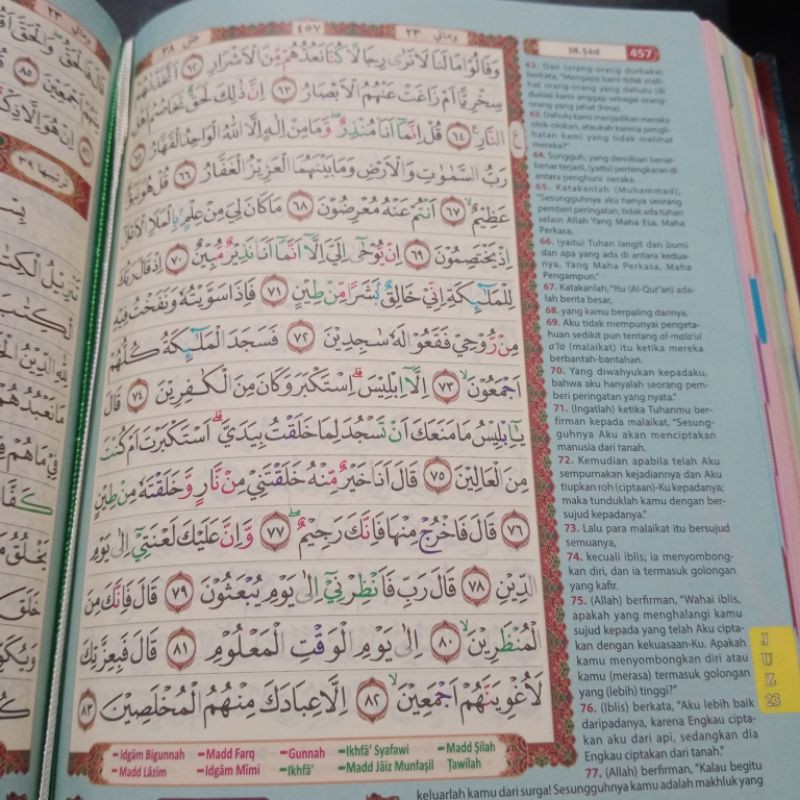 ومالي ٢٣
٤٥٧
ص ٣٨
وَقَالُوا مَا لَنَا لَا نَرٰى رِجَالًا كُنَّا نَعُدُّهُمْ مِّنَ الْاَشْرَارِ ٦٢ اَتَّخَذْنٰهُمْ
سِخْرِيًّا اَمْ زَاغَتْ عَنْهُمُ الْاَبْصَارُ ٦٣ اِنَّ ذٰلِكَ لَحَقٌّ تَخَاصُمُ اَهْلِ
النَّارِ ٦٤ قُلْ اِنَّمَآ اَنَا۠ مُنْذِرٌ وَّمَا مِنْ اِلٰهٍ اِلَّا اللّٰهُ الْوَاحِدُ الْقَهَّارُ ٦٥
رَبُّ السَّمٰوٰتِ وَالْاَرْضِ وَمَا بَيْنَهُمَا الْعَزِيْزُ الْغَفَّارُ ٦٦ قُلْ هُوَ نَبَؤٌا
عَظِيْمٌ ٦٧ اَنْتُمْ عَنْهُ مُعْرِضُوْنَ ٦٨ مَا كَانَ لِيَ مِنْ عِلْمٍ بِالْمَلَاِ الْاَعْلٰٓى
اِذْ يَخْتَصِمُوْنَ ٦٩ اِنْ يُّوْحٰىٓ اِلَيَّ اِلَّآ اَنَّمَآ اَنَا۠ نَذِيْرٌ مُّبِيْنٌ ٧٠ اِذْ قَالَ رَبُّكَ
لِلْمَلٰۤىِٕكَةِ اِنِّيْ خَالِقٌۢ بَشَرًا مِّنْ طِيْنٍ ٧١ فَاِذَا سَوَّيْتُهٗ وَنَفَخْتُ فِيْهِ
مِنْ رُّوْحِيْ فَقَعُوْا لَهٗ سٰجِدِيْنَ ٧٢ فَسَجَدَ الْمَلٰۤىِٕكَةُ كُلُّهُمْ
اَجْمَعُوْنَ ٧٣ اِلَّآ اِبْلِيْسَ اِسْتَكْبَرَ وَكَانَ مِنَ الْكٰفِرِيْنَ ٧٤ قَالَ
يٰٓاِبْلِيْسُ مَا مَنَعَكَ اَنْ تَسْجُدَ لِمَا خَلَقْتُ بِيَدَيَّ اَسْتَكْبَرْتَ اَمْ كُنْتَ
مِنَ الْعَالِيْنَ ٧٥ قَالَ اَنَا۠ خَيْرٌ مِّنْهُ خَلَقْتَنِيْ مِنْ نَّارٍ وَّخَلَقْتَهٗ مِنْ طِيْنٍ
٧٦ قَالَ فَاخْرُجْ مِنْهَا فَاِنَّكَ رَجِيْمٌ ٧٧ وَّاِنَّ عَلَيْكَ لَعْنَتِيْٓ اِلٰى يَوْمِ
الدِّيْنِ ٧٨ قَالَ رَبِّ فَاَنْظِرْنِيْٓ اِلٰى يَوْمِ يُبْعَثُوْنَ ٧٩ قَالَ فَاِنَّكَ مِنَ
الْمُنْظَرِيْنَ ٨٠ اِلٰى يَوْمِ الْوَقْتِ الْمَعْلُوْمِ ٨١ قَالَ فَبِعِزَّتِكَ
لَاُغْوِيَنَّهُمْ اَجْمَعِيْنَ ٨٢ اِلَّا عِبَادَكَ مِنْهُمُ الْمُخْلَصِيْنَ ٨٣
Idgām Bigunnah Madd Farq Gunnah Ikhfā' Syafawi Madd Ṣilah
Madd Lāzim Idgām Mīmi Ikhfā' Madd Jāiz Munfaṣil Ṭawilah
38. Ṣād 457
62. Dan (orang-orang durhaka)
berkata, "Mengapa kami tidak meli-
hat orang-orang yang dahulu (di
dunia) kami anggap sebagai orang-
orang yang jahat (hina).
63. Dahulu kami menjadikan mereka
olok-olokan, ataukah karena pengli-
hatan kami yang tidak melihat
mereka?"
64. Sungguh, yang demikian benar-
benar terjadi, (yaitu) pertengkaran di
antara penghuni neraka.
65. Katakanlah (Muhammad),
"Sesungguhnya aku hanya seorang
pemberi peringatan, tidak ada tuhan
selain Allah Yang Maha Esa, Maha
Perkasa,
66. (yaitu) Tuhan langit dan bumi
dan apa yang ada di antara kedua-
nya, Yang Maha Perkasa, Maha
Pengampun."
67. Katakanlah, "Itu (Al-Qur'an) ada-
lah berita besar,
68. yang kamu berpaling darinya.
69. Aku tidak mempunyai pengeta-
huan sedikit pun tentang al-mala'ul
a'la (malaikat) itu ketika mereka
berbantah-bantahan.
70. Yang diwahyukan kepadaku,
bahwa aku hanyalah seorang pem-
beri peringatan yang nyata."
71. (Ingatlah) ketika Tuhanmu ber-
firman kepada malaikat, "Sesung-
guhnya Aku akan menciptakan
manusia dari tanah.
72. Kemudian apabila telah Aku
sempurnakan kejadiannya dan Aku
tiupkan roh (ciptaan)-Ku kepadanya;
maka tunduklah kamu dengan ber-
sujud kepadanya."
73. Lalu para malaikat itu bersujud
semuanya,
74. kecuali iblis; ia menyombong-
kan diri, dan ia termasuk golongan
yang kafir.
75. (Allah) berfirman, "Wahai iblis,
apakah yang menghalangi kamu
sujud kepada yang telah Aku cipta-
kan dengan kekuasaan-Ku. Apakah
kamu menyombongkan diri atau
kamu (merasa) termasuk golongan
yang (lebih) tinggi?"
76. (Iblis) berkata, "Aku lebih baik
daripadanya, karena Engkau cipta-
kan aku dari api, sedangkan dia
Engkau ciptakan dari tanah."
77. (Allah) berfirman, "Kalau begitu
keluarlah kamu dari surga! Sesungguhnya kamu adalah makhluk yang
JUZ
23